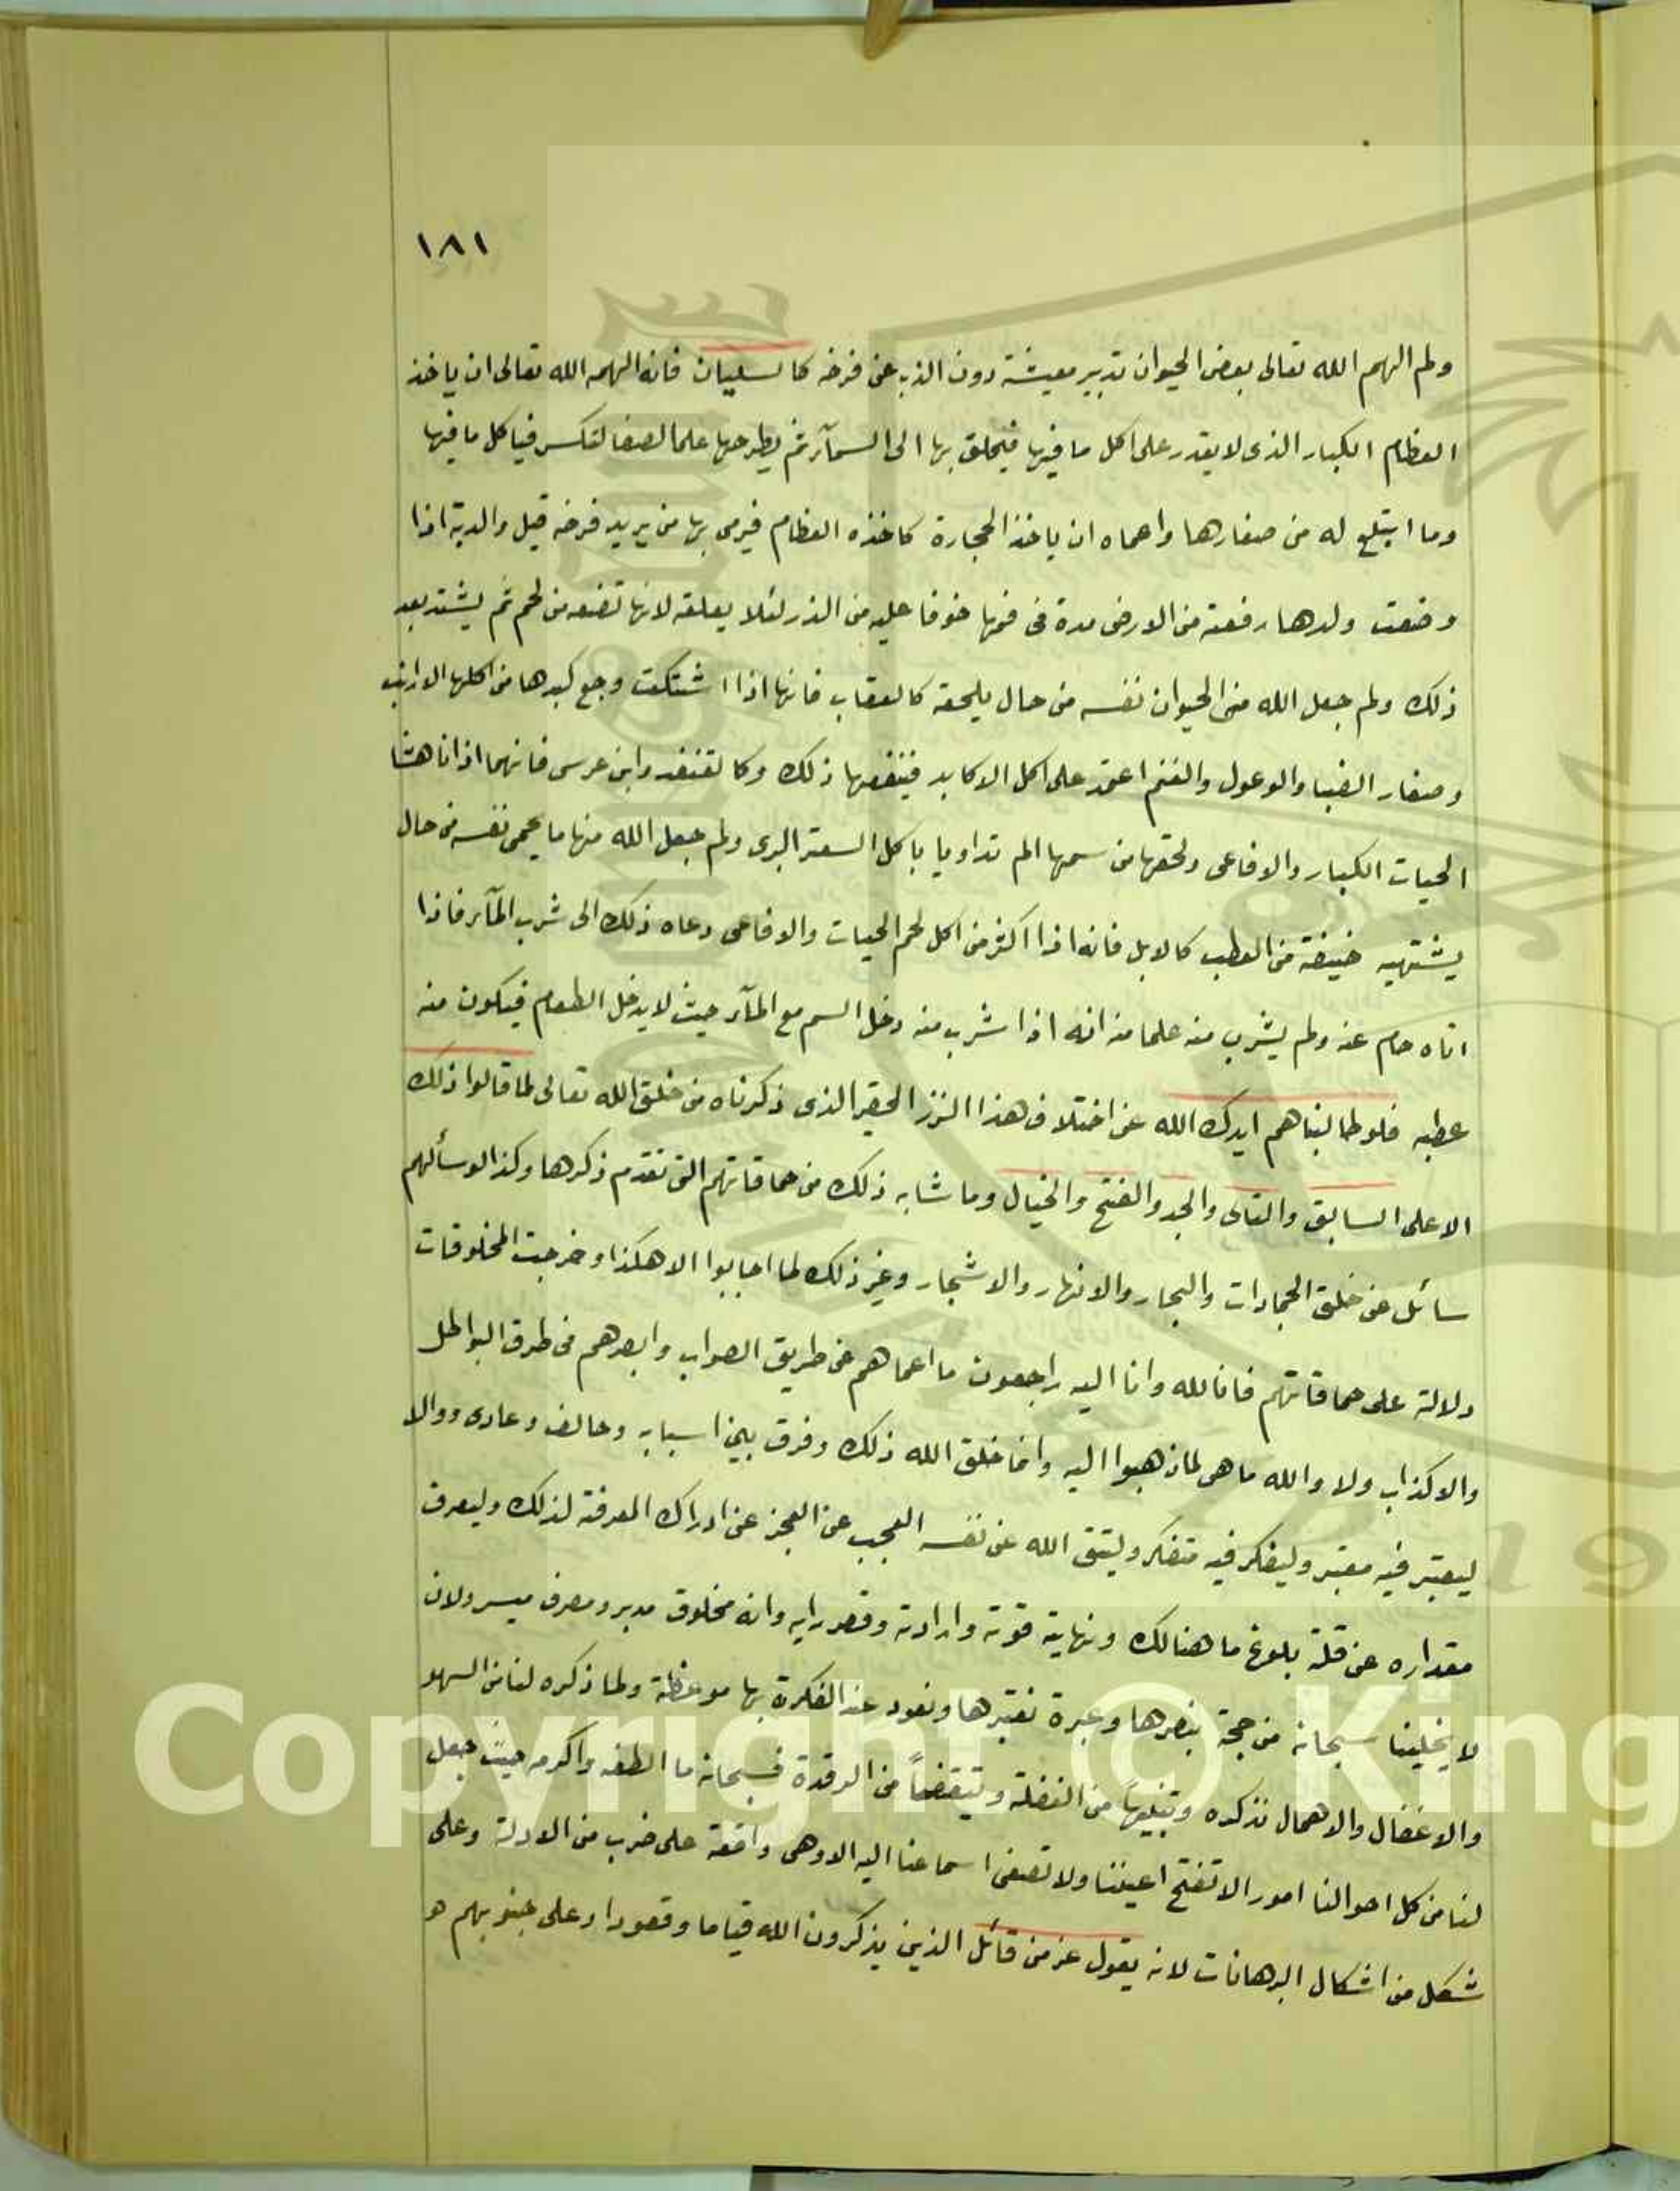 ١٨١
ولم الهم الله تعالى بعض الحيوان تدبير معيشة دون الذب عن فرخه كالسليان فانه الهمه الله تعالى ان ياخذ
العظام الكبار الذى لا يقدر على اكل ما فيها فيحلق بها الى السمآء ثم يطرحها على الصفا لتكسر فياكل ما فيها
وما ابتلع له من صغارها واهماه ان ياخذ الحجارة كاخذه العظام فيرمى بها من يريد فرخه قيل والدبة اذا
وضعت ولدها رفعته من الارض مدة فى فمها خوفا عليه من الذر لئلا يعلقه لانها تضعه من لحم ثم يشتد بعد
ذلك ولم جعل الله من الحيوان نفسه من حال يلحقه كالعقاب فانها اذا اشتكت وجع كبدها من اكلها الارانب
وصغار الضبا والوعول والغنم اعتمد على اكل الاكابد فينفعها ذلك وكالقنفد وابن عرس فانهما اذا ناهشا
الحيات الكبار والافاعى ولحقها من سمها الم تداويا باكل السعتر البرى ولم جعل الله منها ما يحمى نفسه من حال
يشتهيه خيفة من العطب كالابل فانه اذا اكثر من اكل لحم الحيات والافاعى دعاه ذلك الى شرب المآء فاذا
اتاه حام عنه ولم يشرب منه علما منه انه اذا شرب منه دخل السم مع المآء حيث لا يدخل الطعام فيكون منه
عطبه فلو طالبناهم ايدك الله عن اختلاف هذا النزر الحقير الذى ذكرناه من خلق الله تعالى لما قالوا ذلك
الا على السابق والتالى والجد والفتح والخيال وما شابه ذلك من حماقاتهم التى تقدم ذكرها وكذا لو سألهم
سائل عن خلق الجمادات والبحار والانهار والاشجار وغير ذلك لما اجابوا الا هكذا وخرجت المخلوقات
دلالة على حماقاتهم فانا لله وانا اليه راجعون ما اعماهم عن طريق الصواب وابصرهم فى طرق البواطل
والاكذاب ولا والله ما هى لما ذهبوا اليه وانما خلق الله ذلك وفرق بين اسبابه وخالف وعادى ووالا
ليعتبر فيه معتبر وليفكر فيه متفكر وليتق الله عن نفسه العجب عن العجز عن ادراك المعرفة لذلك وليعرف
مقداره عن قلة بلوغ ما هنالك ونهاية قوته وارادته وقصر رايه وانه مخلوق مدبر ومصرف ميسر ولان
لا يخلينا سبحانه من حجة ينصرها وعبرة نعتبرها ونعود عند الفكرة بها موعظة ولما ذكره لنا من السهو
والاغفال والاهمال نذكره وتنبيهاً من الغفلة وتيقضاً من الرقدة فسبحانه ما الطفه واكرمه حيث جعل
لنا من كل احوالنا امور الا تفتح اعيننا ولا تصغى اسماعنا اليه الا وهى واقعة على ضرب من الادلة وعلى
شكل من اشكال البرهانات لانه يقول عز من قائل الذين يذكرون الله قياما وقعودا وعلى جنوبهم هو
Copyright © King